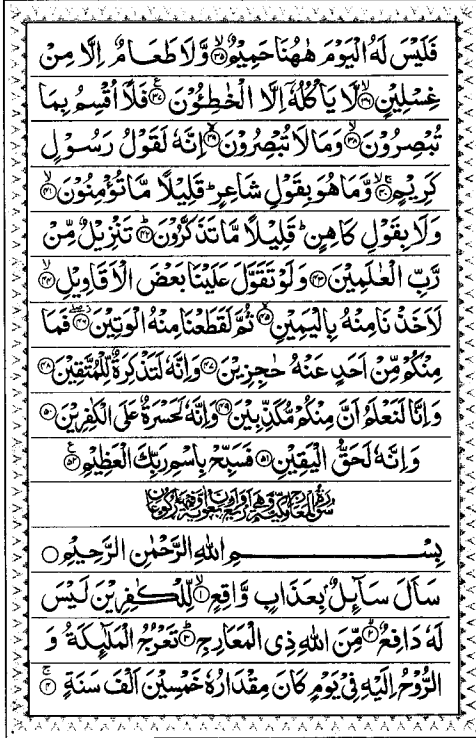 فَلَيْسَ لَهُ الْيَوْمَ هٰهُنَا حَمِيْمٌ ﴿۳۵﴾ وَّلَا طَعَامٌ اِلَّا مِنْ
غِسْلِيْنٍ ﴿۳۶﴾ لَّا يَاْكُلُهٗٓ اِلَّا الْخٰطِـُٔوْنَ ﴿۳۷﴾ فَلَآ اُقْسِمُ بِمَا
تُبْصِرُوْنَ ﴿۳۸﴾ وَمَا لَا تُبْصِرُوْنَ ﴿۳۹﴾ اِنَّهٗ لَقَوْلُ رَسُوْلٍ
كَرِيْمٍ ﴿۴۰﴾ وَّمَا هُوَ بِقَوْلِ شَاعِرٍ ؕ قَلِيْلًا مَّا تُؤْمِنُوْنَ ﴿۴۱﴾
وَلَا بِقَوْلِ كَاهِنٍ ؕ قَلِيْلًا مَّا تَذَكَّرُوْنَ ﴿۴۲﴾ تَنْزِيْلٌ مِّنْ
رَّبِّ الْعٰلَمِيْنَ ﴿۴۳﴾ وَلَوْ تَقَوَّلَ عَلَيْنَا بَعْضَ الْاَقَاوِيْلِ ﴿۴۴﴾
لَاَخَذْنَا مِنْهُ بِالْيَمِيْنِ ﴿۴۵﴾ ثُمَّ لَقَطَعْنَا مِنْهُ الْوَتِيْنَ ﴿۴۶﴾ فَمَا
مِنْكُمْ مِّنْ اَحَدٍ عَنْهُ حٰجِزِيْنَ ﴿۴۷﴾ وَاِنَّهٗ لَتَذْكِرَةٌ لِّلْمُتَّقِيْنَ ﴿۴۸﴾
وَاِنَّا لَنَعْلَمُ اَنَّ مِنْكُمْ مُّكَذِّبِيْنَ ﴿۴۹﴾ وَاِنَّهٗ لَحَسْرَةٌ عَلَى الْكٰفِرِيْنَ ﴿۵۰﴾
وَاِنَّهٗ لَحَقُّ الْيَقِيْنِ ﴿۵۱﴾ فَسَبِّحْ بِاسْمِ رَبِّكَ الْعَظِيْمِ ﴿۵۲﴾
بِسْمِ اللهِ الرَّحْمٰنِ الرَّحِيْمِ
سَاَلَ سَآئِلٌۢ بِعَذَابٍ وَّاقِعٍ ﴿۱﴾ لِّلْكٰفِرِيْنَ لَيْسَ
لَهٗ دَافِعٌ ﴿۲﴾ مِّنَ اللهِ ذِى الْمَعَارِجِ ﴿۳﴾ تَعْرُجُ الْمَلٰٓئِكَةُ وَ
الرُّوْحُ اِلَيْهِ فِيْ يَوْمٍ كَانَ مِقْدَارُهٗ خَمْسِيْنَ اَلْفَ سَنَةٍ ﴿۴﴾